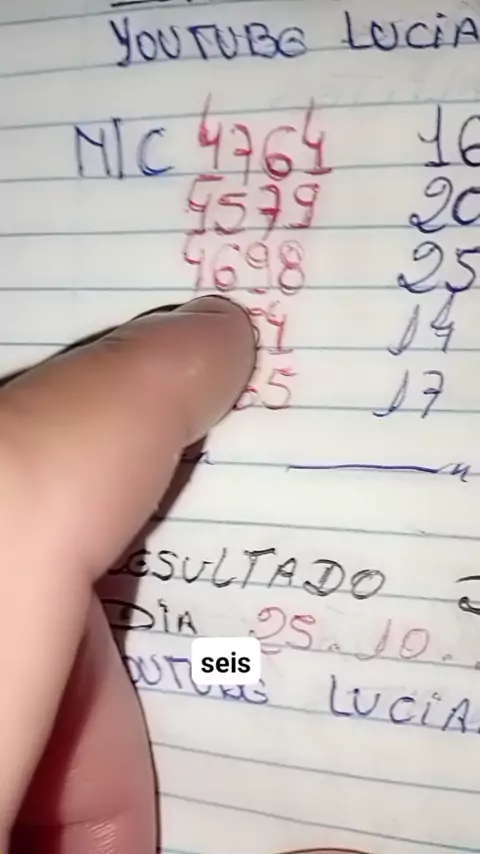 YOUTUBE LUCIA
M/C 4764 16
4579 20
4698 25
54 14
65 17
ESULTADO
DIA 25.10.
seis
OUTUBE LUCIA